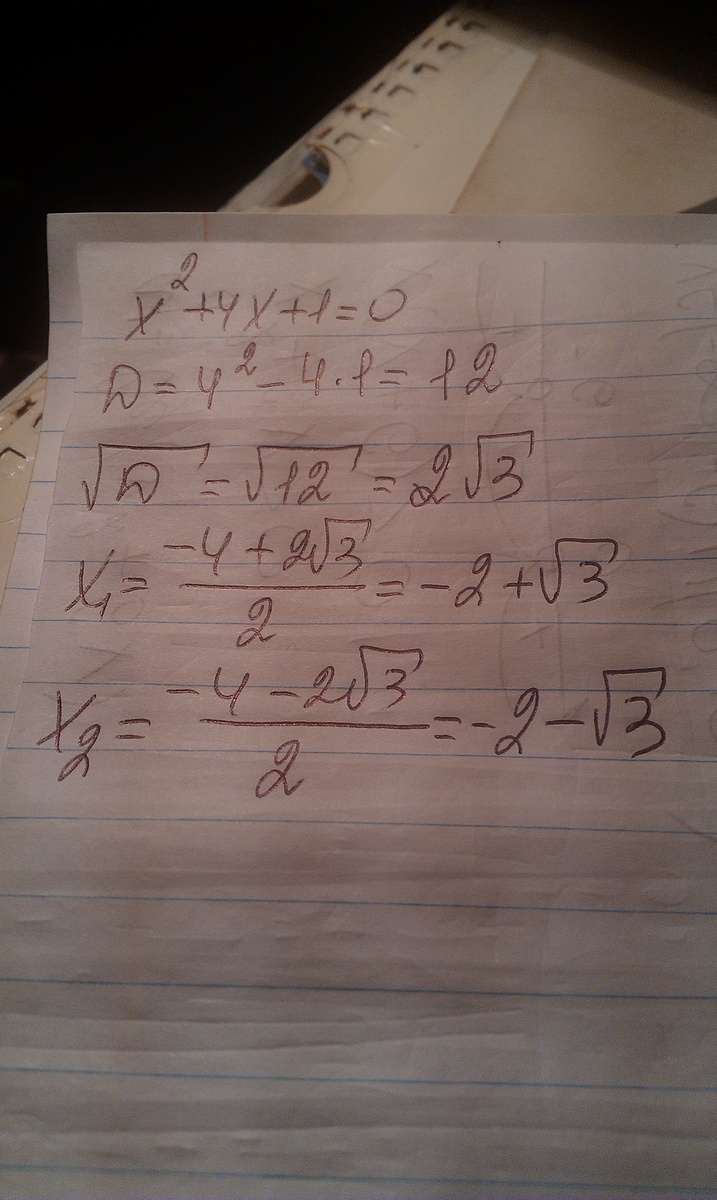 x² + 4x + 1 = 0
D = 4² - 4·1 = 12
√D = √12 = 2√3
x₁ = (-4 + 2√3)/2 = -2 + √3
x₂ = (-4 - 2√3)/2 = -2 - √3